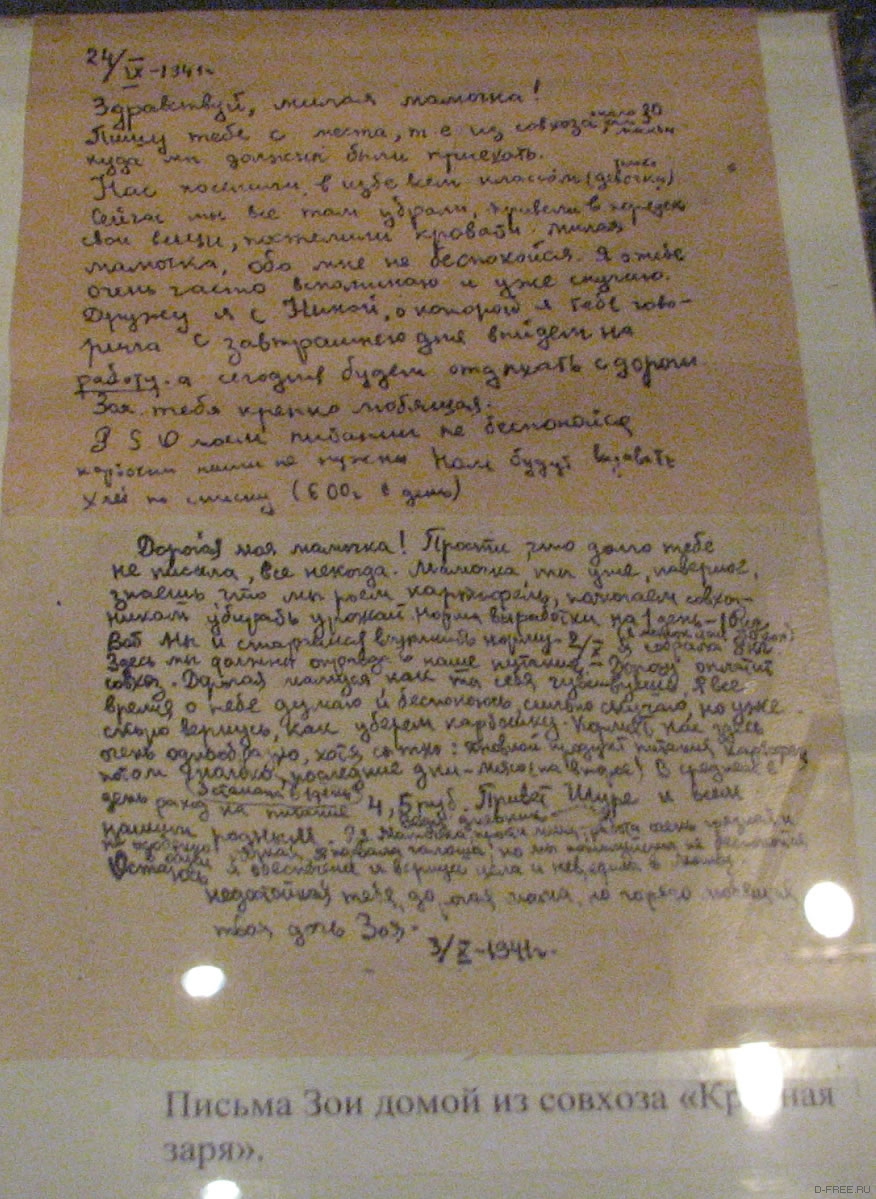 24/IX-1941г
Здравствуй, милая мамочка!
Пишу тебе с места, т е из совхоза
куда мы должны были приехать.
Нас поселили в избе всем классом (девочки)
Сейчас мы все там убрали, привели в порядок
свои вещи, постелили кровати. Милая
мамочка, обо мне не беспокойся. Я о тебе
очень часто вспоминаю и уже скучаю.
Дружу я с Ниной, о которой я тебе гово-
рила С завтрашнего дня выйдем на
работу. а сегодня будем отдыхать с дороги
Зоя тебя крепко любящая.
P S О моем питании не беспокойся
карточки наши не нужны Нам будут выдавать
хлеб по списку (600г в день)
Дорогая моя мамочка! Прости, что долго тебе
не писала, все некогда. Мамочка, ты уже, наверное,
знаешь что мы роем картофель, помогаем совхоз-
никам убирать урожай Норма выработки на 1 день -
Вот мы и стараемся выполнить норму. 2/X я собрала
Здесь мы должны наше питание. - Дорогу оплатит
совхоз. Дорогая мамуся как ты себя чувствуешь, я все
время о тебе думаю и беспокоюсь, сильно скучаю, но уже
скоро вернусь, как уберем картошку. Кормят нас здесь
очень однообразно, хотя сытно: основной продукт питания картофель
потом молоко, последние дни - мясо (на второе) В среднем в
день расход на питание 4,5 руб. Привет Шуре и всем
нашим родным. Мамочка, прости меня, работа очень грязная и
не особенно я порвала галоши но ты пожалуйста не беспокойся
я обеспечена и вернусь цела и невредима в Москву
Остаюсь недостойная тебя, дорогая моя, но горячо любящая
твоя дочь Зоя.
3/X-1941г.
Письма Зои домой из совхоза «Кр ная
заря».
D-FREE.RU